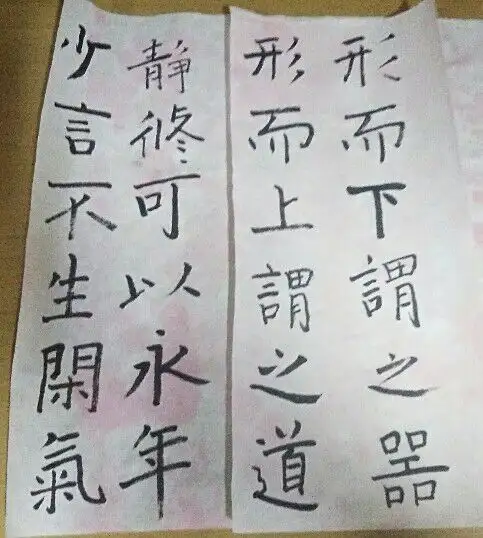 少言不生閑氣
靜修可以永年
形而上謂之道
形而下謂之器